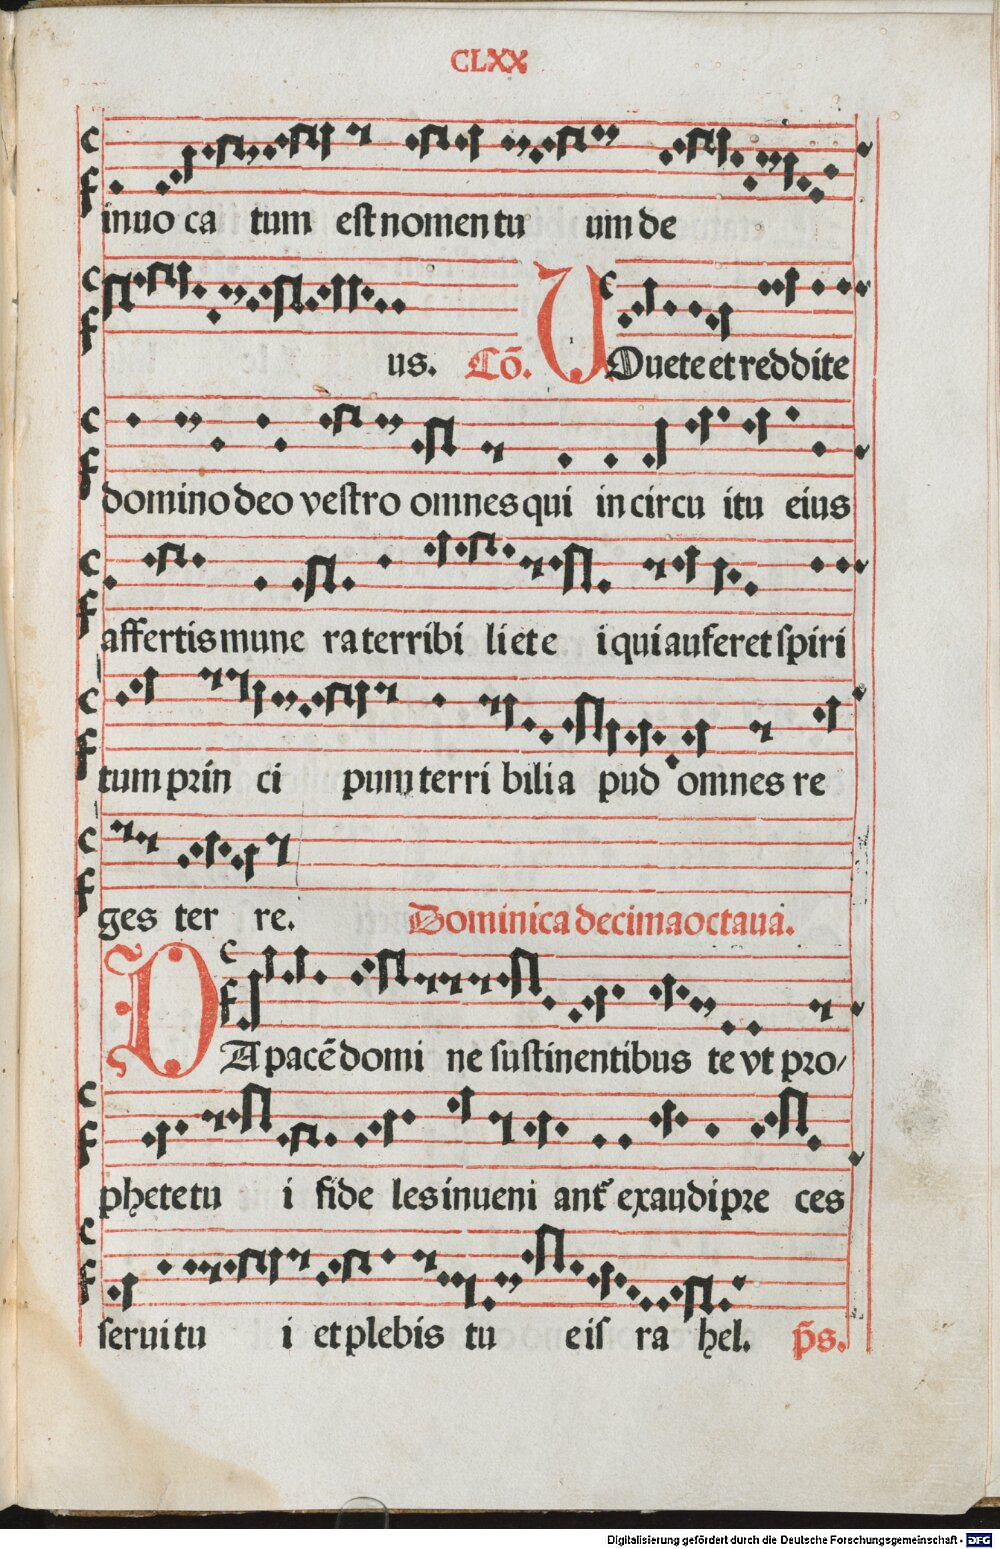 CLXX
inuo ca tum est nomen tu um de
us. Cō. VOuete et reddite
domino deo vestro omnes qui in circu itu eius
affertis mune ra terribi li et e i qui aufert spiri
tum prin ci pum terri bili a pud omnes re
ges ter re. Dominica decimaoctaua.
DA pacē domi ne sustinentibus te vt pro/
phete tu i fide les inueni ant᷑ exaudi pre ces
serui tu i et plebis tu e is ra hel. p̄s.
Digitalisierung gefördert durch die Deutsche Forschungsgemeinschaft - DFG